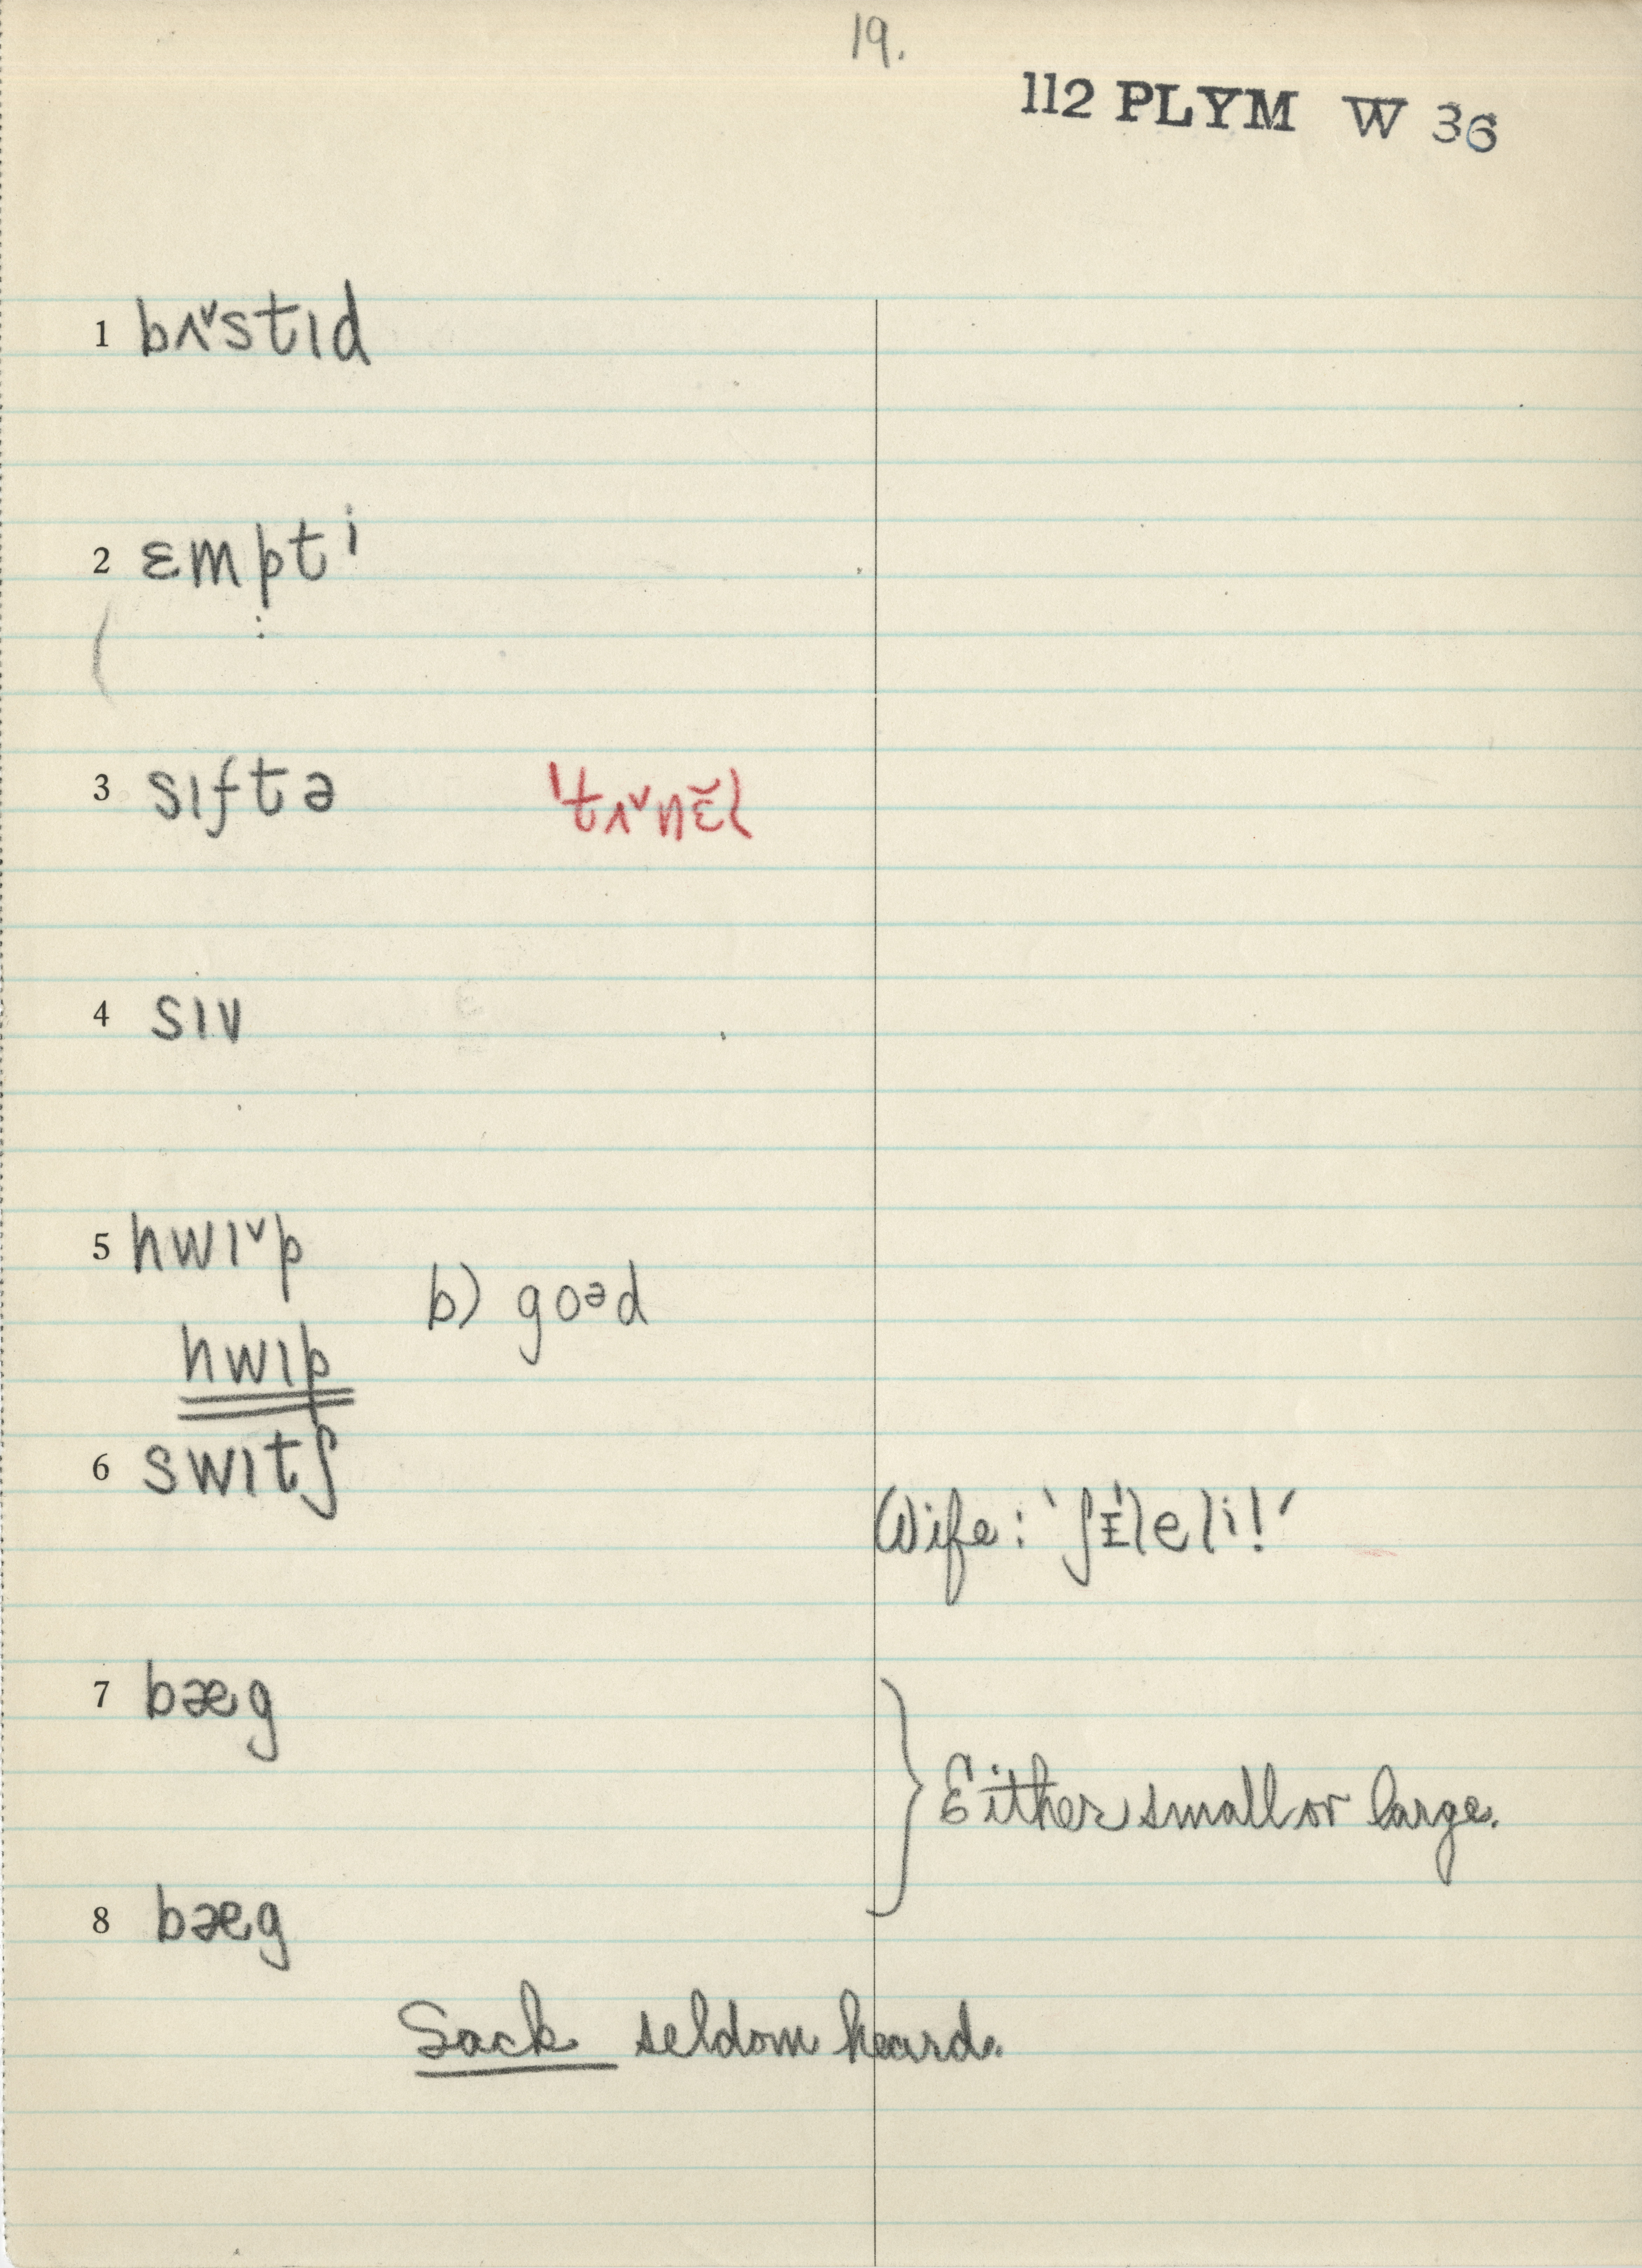 19.
112 PLYM W 36
1 bʌ˅stɪd
2 ɛmptⁱ
3 sɪftə ˈtʌ˅nɛ̆l
4 sɪv
5 hwɪ˅p
b) goᵊd
hwɪp
6 swɪtʃ
Wife: ‘ʃɪ̵́leli!’
7 bæg
Either small or large.
8 bæg
Sack seldom heard.